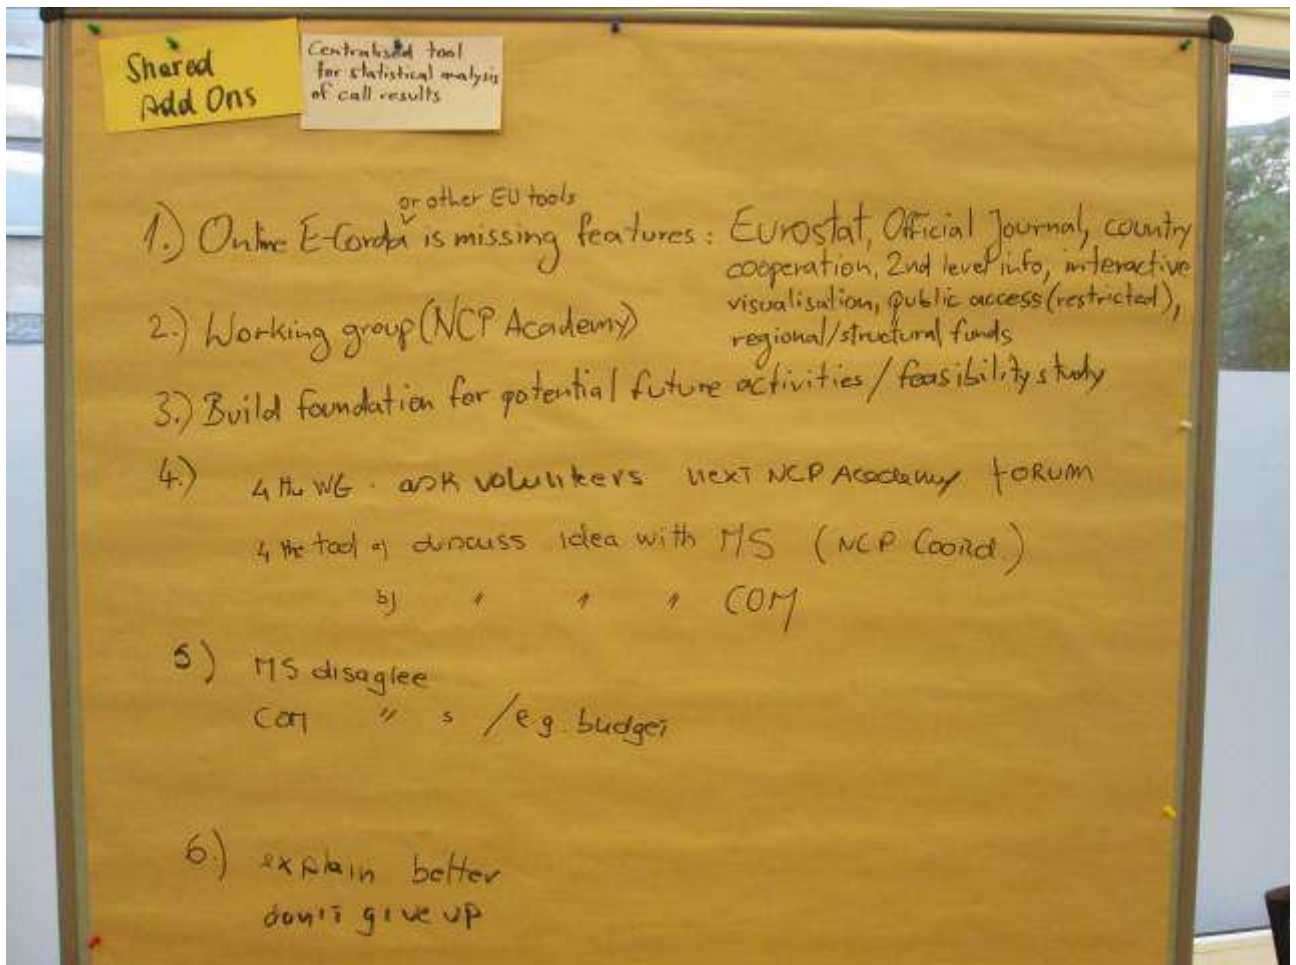 Shared
Add Ons
Centralised tool
for statistical analysis
of call results
or other EU tools
1.) Online E-Corda is missing features: Eurostat, Official Journal, country
cooperation, 2nd level info, interactive
visualisation, public access (restricted),
regional/structural funds
2.) Working group (NCP Academy)
3.) Build foundation for potential future activities / feasibility study
4.) 4 the WG - ask volunteers next NCP Academy forum
4 the tool a) discuss idea with MS (NCP Coord.)
b) " " " COM
5) MS disagree
COM " s /e.g. budget
6.) explain better
don't give up